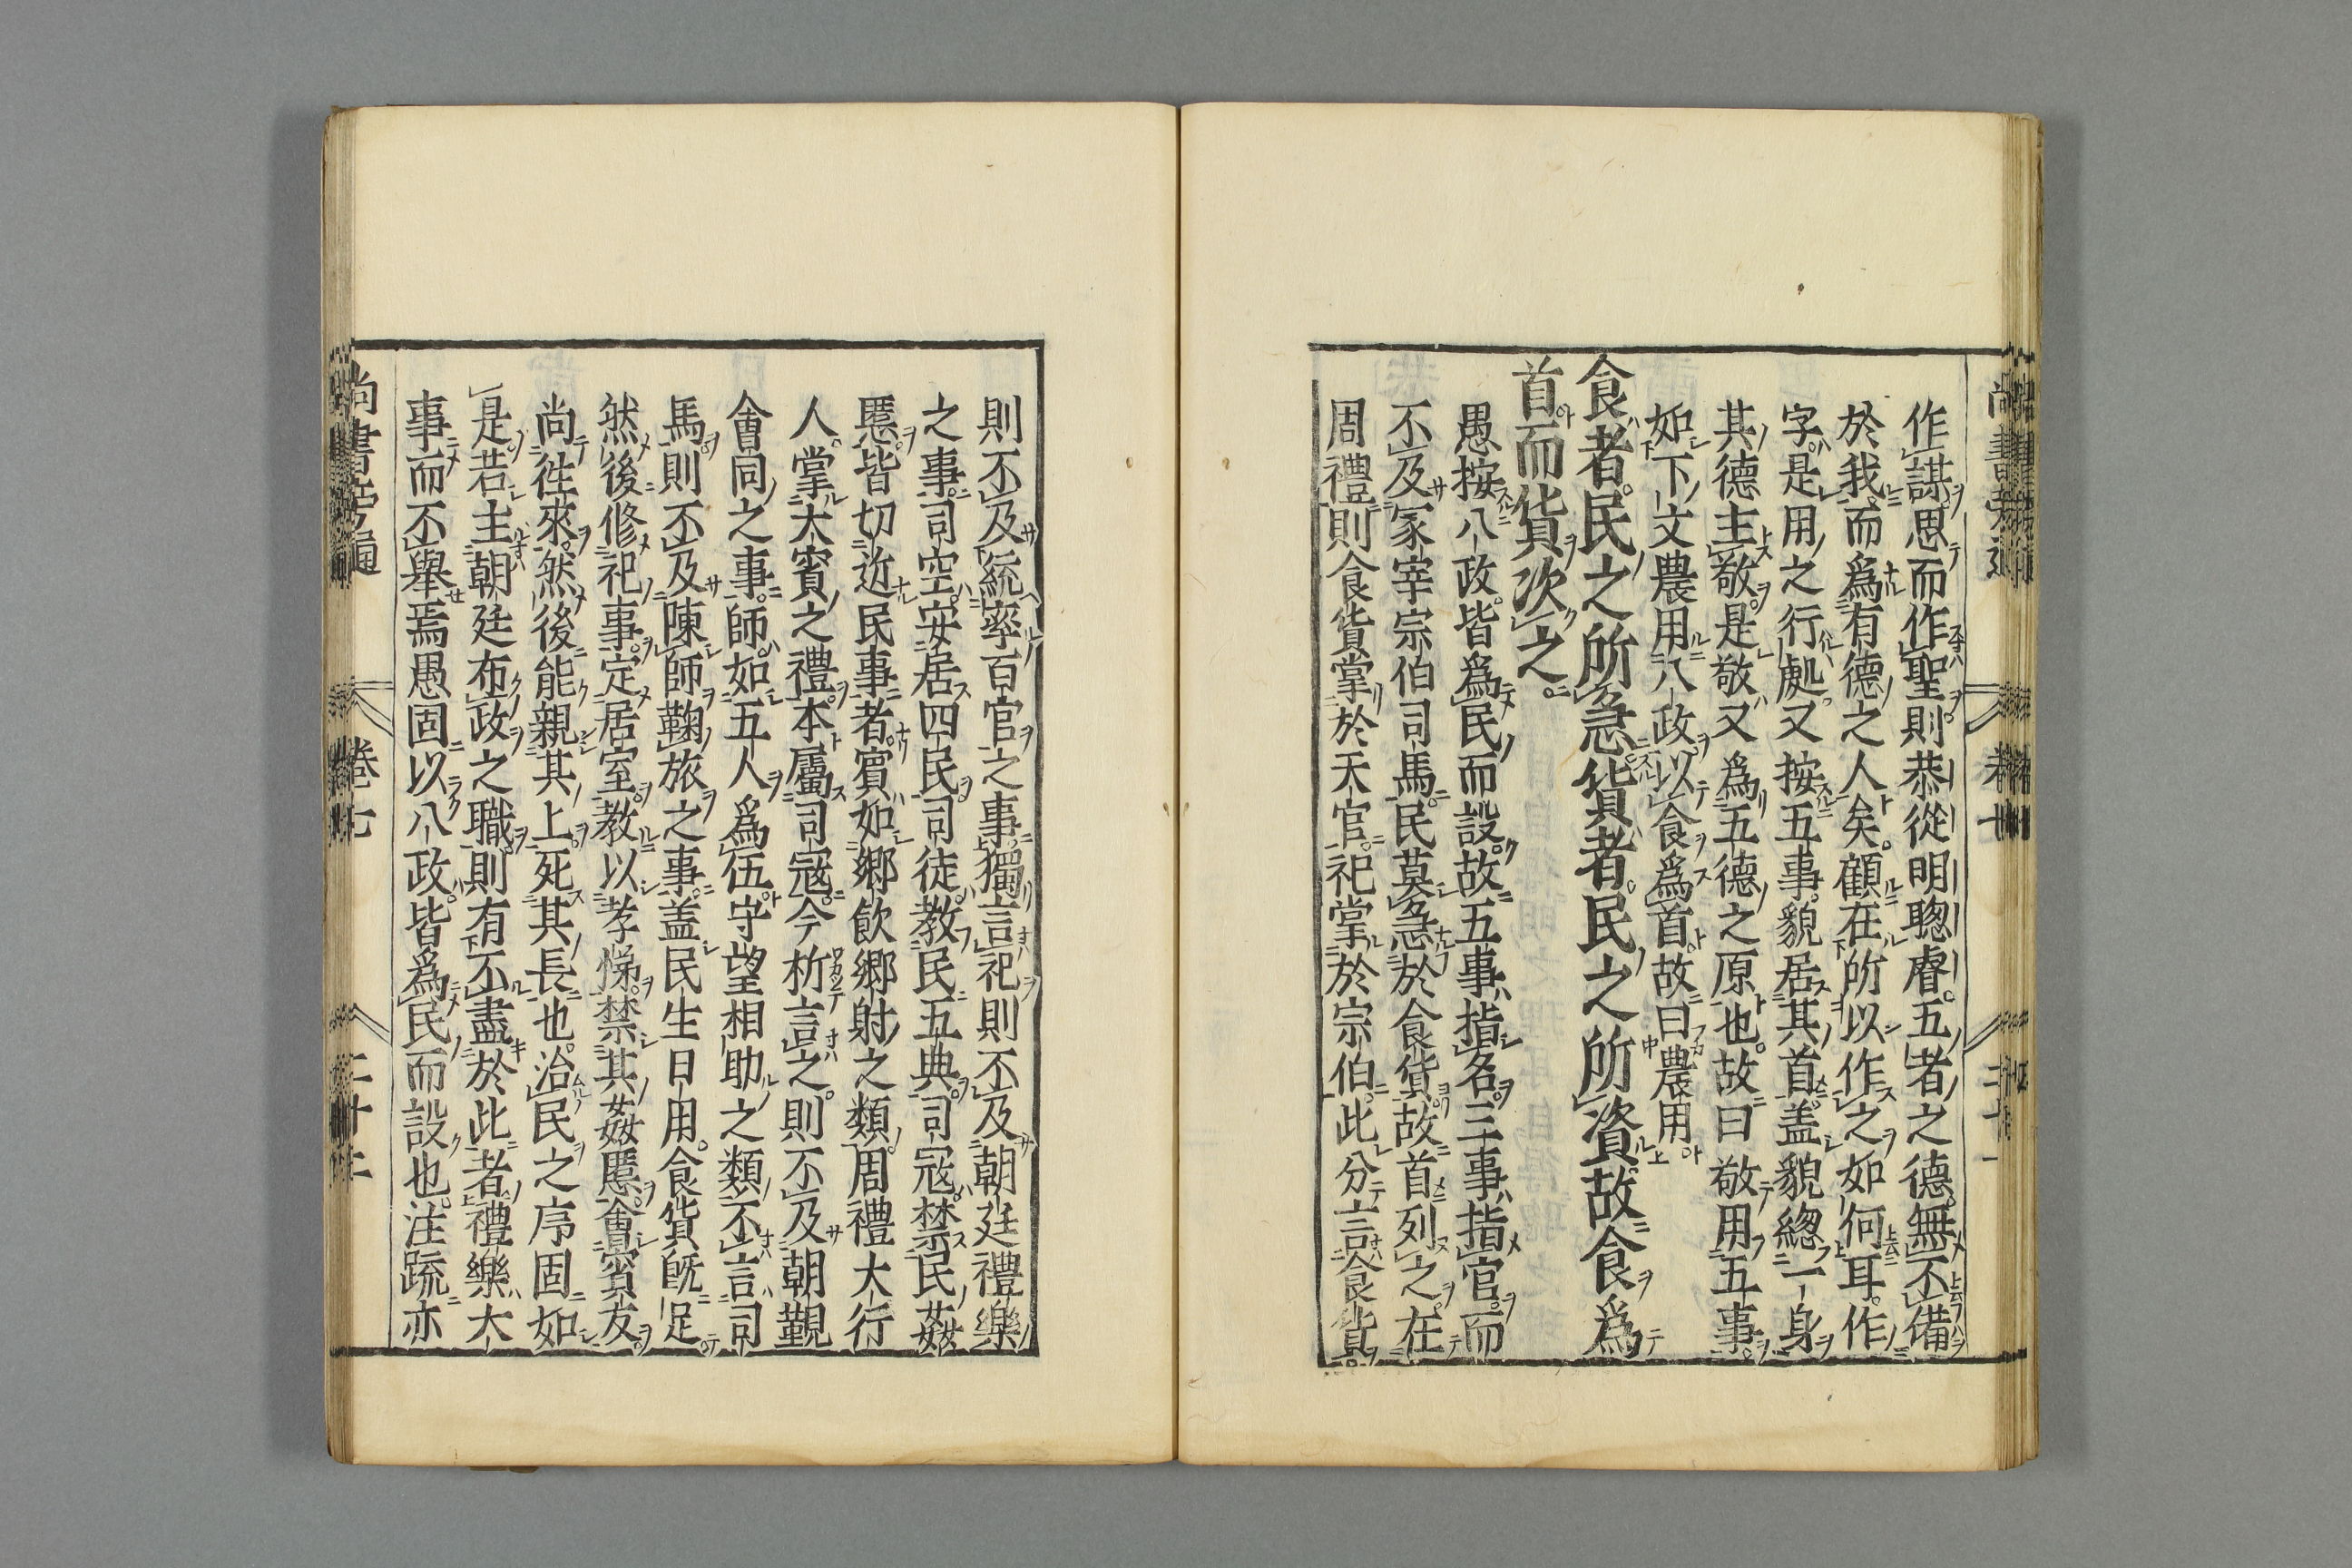 作謀思而作聖則恭從明聰睿五者之德無不備
於我而爲有德之人矣顧在所以作之如何耳作
字是用之行處又按五事貌居其首盖貌緫一身
其德主敬是敬又爲五德之原也故曰敬用五事
如下文農用八政以食爲首故曰農用
食者民之所急貨者民之所資故食爲
首而貨次之
愚按八政皆爲民而設故五事指名三事指官而
不及冢宰宗伯司馬民莫急於食貨故首列之在
周禮則食貨掌於天官祀掌於宗伯此分言食貨
則不及統率百官之事獨言祀則不及朝廷禮樂
之事司空安居四民司徒教民五典司寇禁民姦
慝皆切近民事者賓如鄉飲鄉射之類周禮大行
人掌大賓之禮本屬司寇今析言之則不及朝覲
會同之事師如五人爲伍守望相助之類不言司
馬則不及陳師鞠旅之事盖民生日用食貨既足
然後修祀事定居室教以孝悌禁其姦慝會賓友
尚徃來然後能親其上死其長也治民之序固如
是若主朝廷布政之職則有不盡於此者禮樂大
事而不舉焉愚固以八政皆爲民而設也注疏亦
尚書 卷七